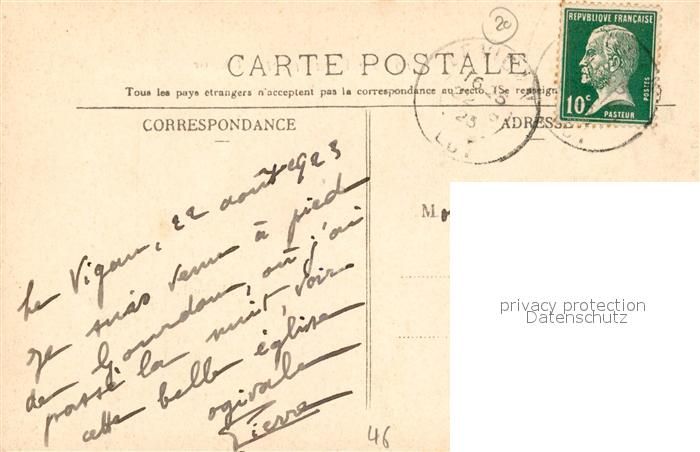 2c
RÉPUBLIQUE FRANÇAISE
10c
POSTES
PASTEUR
CARTE POSTALE
Tous les pays étrangers n'acceptent pas la correspondance au recto. (Se renseign
CORRESPONDANCE
ADRESSE
LE VIGAN
16
22
23
LOT
Le Vigan, 22 août 1923
Je suis venu à pied
de Gourdon, où j'ai
passé la nuit, voir
cette belle église
ogivale
Pierre
M
privacy protection
Datenschutz
46